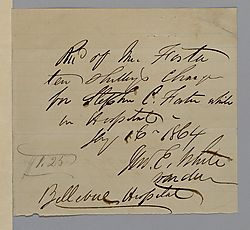 Rec'd of Mr. Foster
ten Shillings Charge
for Stephen C. Foster while
in Hospital
Jany 16 - 1864
$1.25
Wm. E. White
Warden
Bellevue Hospital